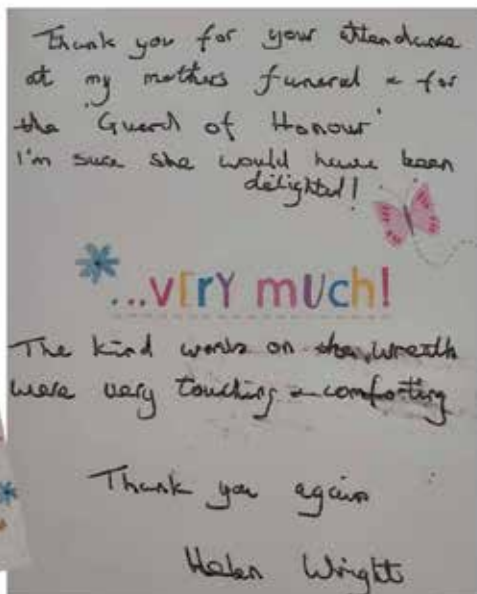 Thank you for your attendance
at my mothers funeral & for
the 'Guard of Honour'
I'm sure she would have been
delighted!
...very much!
The kind words on the wreath
were very touching & comforting
Thank you again
Helen Wright